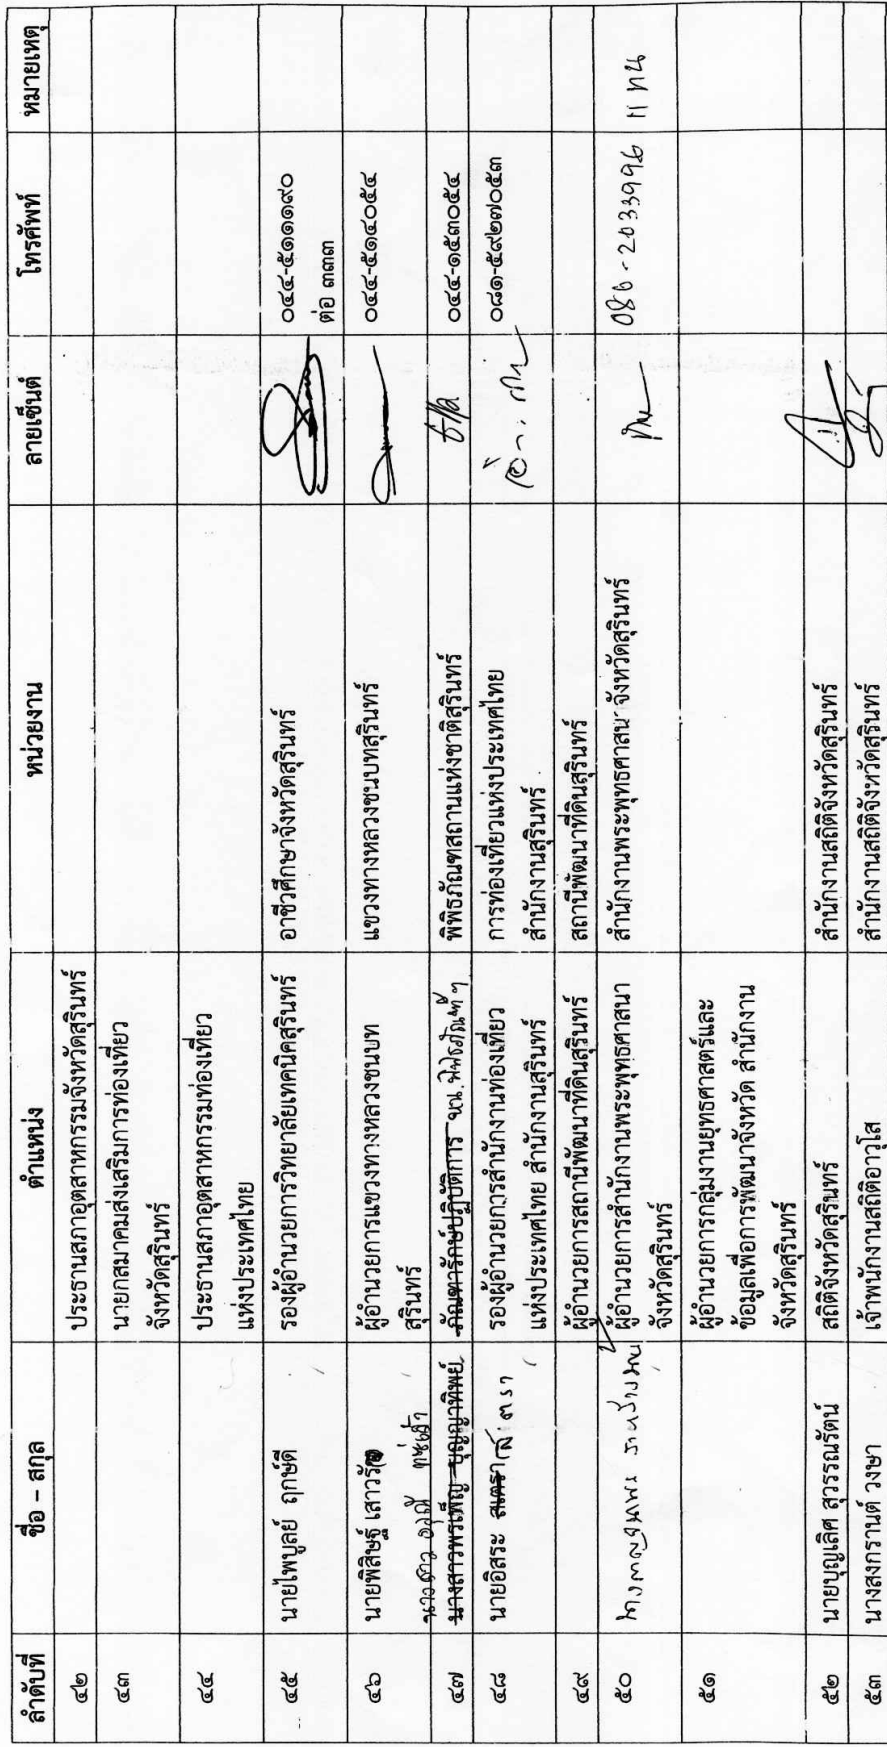 ลำดับที่ ชื่อ – สกุล ตำแหน่ง หน่วยงาน ลายเซ็นต์ โทรศัพท์ หมายเหตุ
๔๒ ประธานสภาอุตสาหกรรมจังหวัดสุรินทร์
๔๓ นายกสมาคมส่งเสริมการท่องเที่ยว
จังหวัดสุรินทร์
๔๔ ประธานสภาอุตสาหกรรมท่องเที่ยว
แห่งประเทศไทย
๔๕ นายไพบูลย์ ฤกษ์ดี รองผู้อำนวยการวิทยาลัยเทคนิคสุรินทร์ อาชีวศึกษาจังหวัดสุรินทร์ ๐๔๔-๕๑๑๑๙๐
ต่อ ๓๓๓
๔๖ นายพิสิษฐ์ เสาวรัจ ผู้อำนวยการแขวงทางหลวงชนบท แขวงทางหลวงชนบทสุรินทร์ ๐๔๔-๕๑๔๐๕๔
สุรินทร์
นางสาว
๔๗ นางสาวพรเพ็ญ บุญญาทิพย์ ภัณฑารักษ์ปฏิบัติการ พิพิธภัณฑสถานแห่งชาติสุรินทร์ ๐๔๔-๑๕๓๐๕๔
๔๘ นายอิสระ สเตรา รองผู้อำนวยการสำนักงานท่องเที่ยว การท่องเที่ยวแห่งประเทศไทย ๐๘๑-๕๙๒๗๐๕๓
แห่งประเทศไทย สำนักงานสุรินทร์ สำนักงานสุรินทร์
๔๙ ผู้อำนวยการสถานีพัฒนาที่ดินสุรินทร์ สถานีพัฒนาที่ดินสุรินทร์
๕๐ ผู้อำนวยการสำนักงานพระพุทธศาสนา สำนักงานพระพุทธศาสน จังหวัดสุรินทร์ 086-2033996
จังหวัดสุรินทร์
๕๑ ผู้อำนวยการกลุ่มงานยุทธศาสตร์และ
ข้อมูลเพื่อการพัฒนาจังหวัด สำนักงาน
จังหวัดสุรินทร์
๕๒ นายบุญเลิศ สุวรรณรัตน์ สถิติจังหวัดสุรินทร์ สำนักงานสถิติจังหวัดสุรินทร์
๕๓ นางสงกรานต์ วงษา เจ้าพนักงานสถิติอาวุโส สำนักงานสถิติจังหวัดสุรินทร์